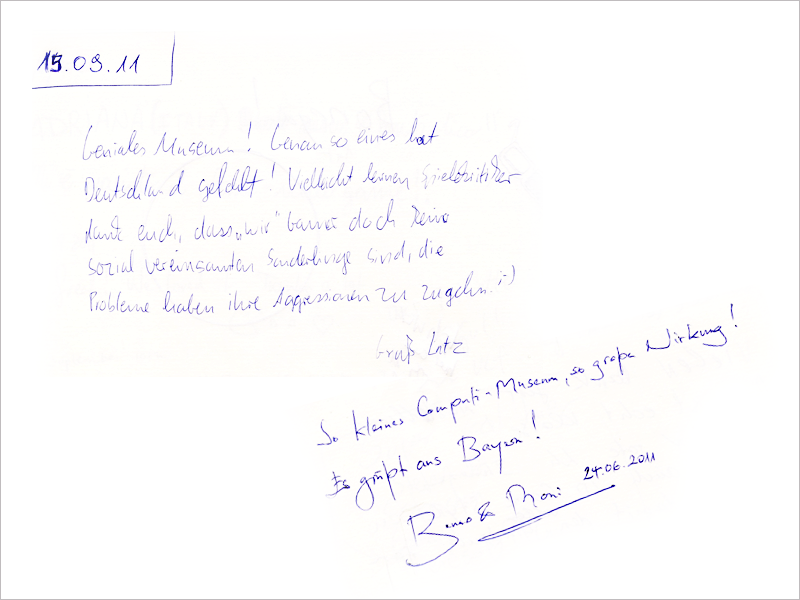 19.09.11
Geniales Museum! Genau so eines hat
Deutschland gefehlt! Vielleicht lernen Spielekritiker
dank euch, dass "wir" Gamer doch keine
sozial vereinsamten Sonderlinge sind, die
Probleme haben ihre Aggressionen zu zügeln. ;-)
Gruß Lutz
So kleines Computer-Museum, so große Wirkung!
Es grüßt aus Bayern!
& Moni 24.06.2011